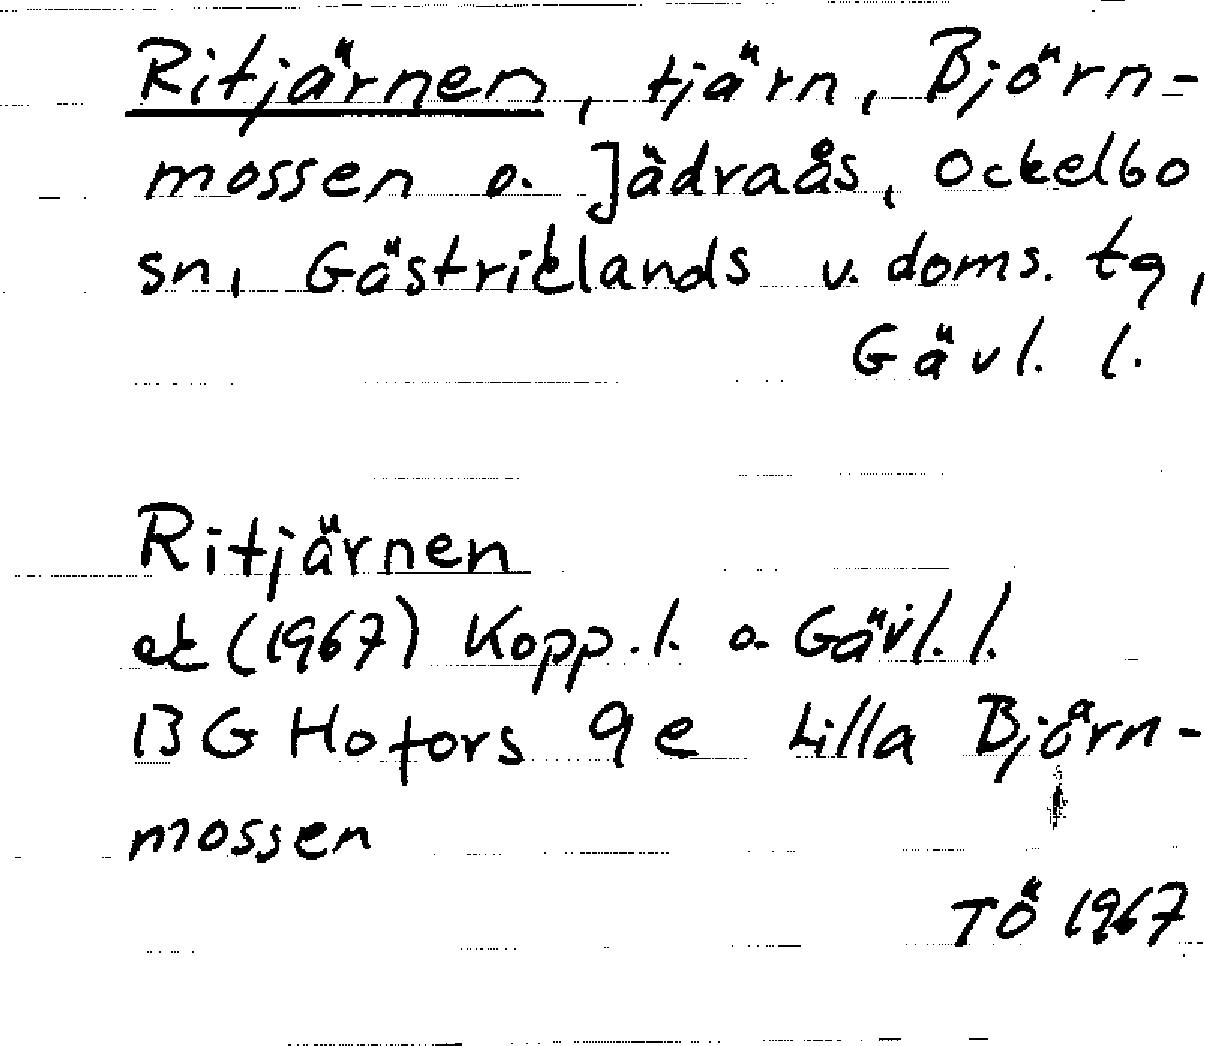 Ritjärnen, tjärn, Björn-
mossen o. Jädraås, Ockelbo
sn, Gästriklands v. doms. tg,
Gävl. l.
Ritjärnen
ek (1967) Kopp. l. o. Gävl. l.
13 G Hofors 9e Lilla Björn-
mossen
TÖ 1967